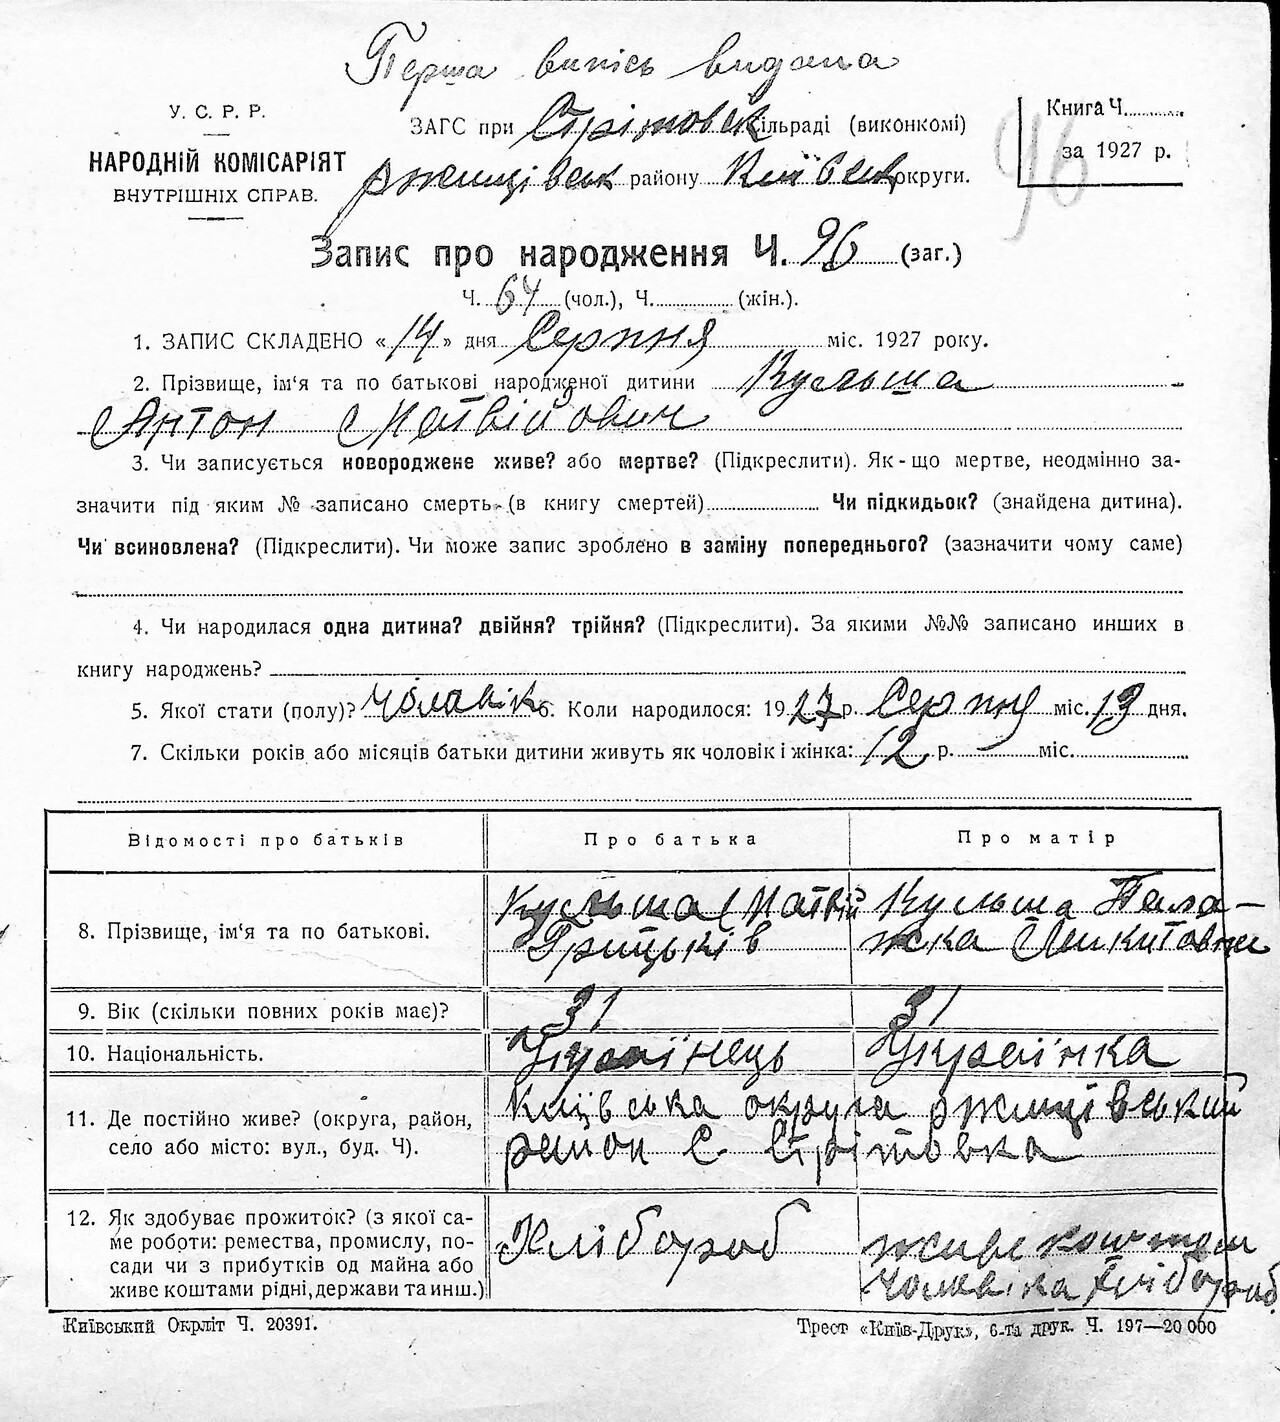 Перша випись видана
У. С. Р. Р.
НАРОДНІЙ КОМІСАРІЯТ
ВНУТРІШНІХ СПРАВ.
ЗАГС при Стрітовск сільраді (виконкомі)
Ржищівськ району Київськ округи.
Книга Ч.
за 1927 р.
96
Запис про народження Ч. 96 (заг.)
Ч. 64 (чол.), Ч. (жін.).
1. ЗАПИС СКЛАДЕНО «14» дня Серпня міс. 1927 року.
2. Прізвище, ім‘я та по батькові народженої дитини Кульша
Антон Матвійович
3. Чи записується новороджене живе? або мертве? (Підкреслити). Як-що мертве, неодмінно за-
значити під яким № записано смерть (в книгу смертей) Чи підкидьок? (знайдена дитина).
Чи всиновлена? (Підкреслити). Чи може запис зроблено в заміну попереднього? (зазначити чому саме)
4. Чи народилася одна дитина? двійня? трійня? (Підкреслити). За якими №№ записано инших в
книгу народжень?
5. Якої стати (полу)? Чоловік 6. Коли народилося: 1927 р. Серпня міс. 13 дня.
7. Скільки років або місяців батьки дитини живуть як чоловік і жінка: 12 р. міс.
Відомості про батьків Про батька Про матір
8. Прізвище, ім‘я та по батькові. Кульша Матвій Грицьків Кульша Пела-
жка Микитовна
9. Вік (скільки повних років має)? 31 31
10. Національність. Українець Українка
11. Де постійно живе? (округа, район, Київська округа Ржищівський
село або місто: вул., буд. Ч). район С. Стрітовка
12. Як здобуває прожиток? (з якої са-
ме роботи: ремества, промислу, по-
сади чи з прибутків од майна або
живе коштами рідні, держави та инш.) Хлібороб живе коштом
чоловіка Хлібороб
Київський Окрліт Ч. 20391.
Трест «Київ-Друк», 6-та друк. Ч. 197—20 000